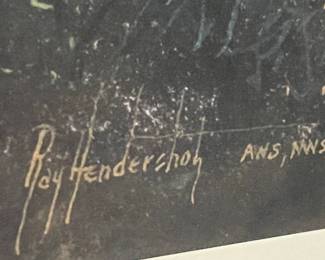 Ray Hendershot ANS, NWS